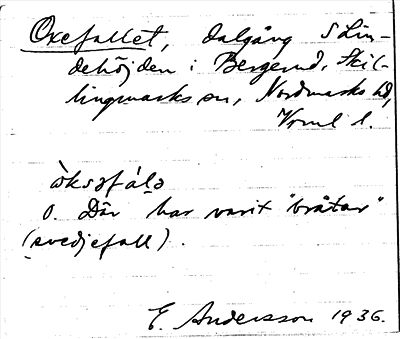 Oxefallet, dalgång S Lin-
dehöjden i Bergerud, Skil-
lingmarks sn, Nordmarks hd,
Vrml l.
òksəfáḷə
o. Där har varit "bråtar"
(svedjefall).
E. Andersson 1936.